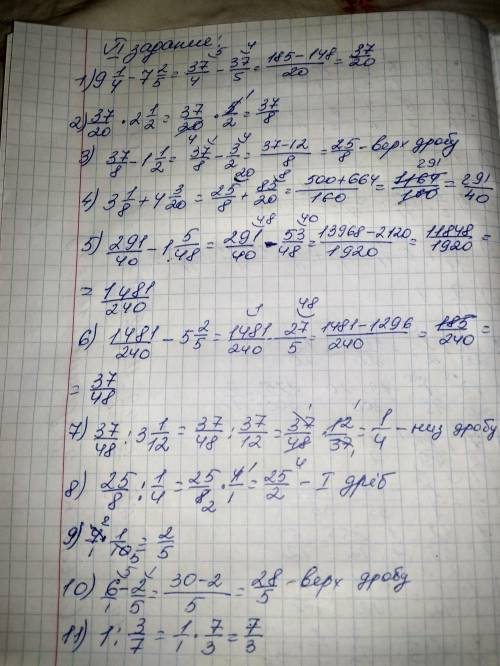 II задание:
1) 9 1/4 - 7 2/5 = 37/4 - 37/5 = 185-148/20 = 37/20
2) 37/20 · 2 1/2 = 37/20 · 5/2 = 37/8
3) 37/8 - 1 1/2 = 37/8 - 3/2 = 37-12/8 = 25/8 - верх дробу
4) 3 1/8 + 4 3/20 = 25/8 + 83/20 = 500+664/160 = 1164/160 = 291/40
5) 291/40 - 1 5/48 = 291/40 - 53/48 = 13968-2120/1920 = 11848/1920 =
= 1481/240
6) 1481/240 - 5 2/5 = 1481/240 - 27/5 = 1481-1296/240 = 185/240 =
= 37/48
7) 37/48 : 3 1/12 = 37/48 : 37/12 = 37/48 · 12/37 = 1/4 - низ дробу
8) 25/8 : 1/4 = 25/8 · 4/1 = 25/2 - I дрёб
9) 4/1 · 1/10 = 2/5
10) 6/1 - 2/5 = 30-2/5 = 28/5 - верх дробу
11) 1 : 3/7 = 1/1 · 7/3 = 7/3